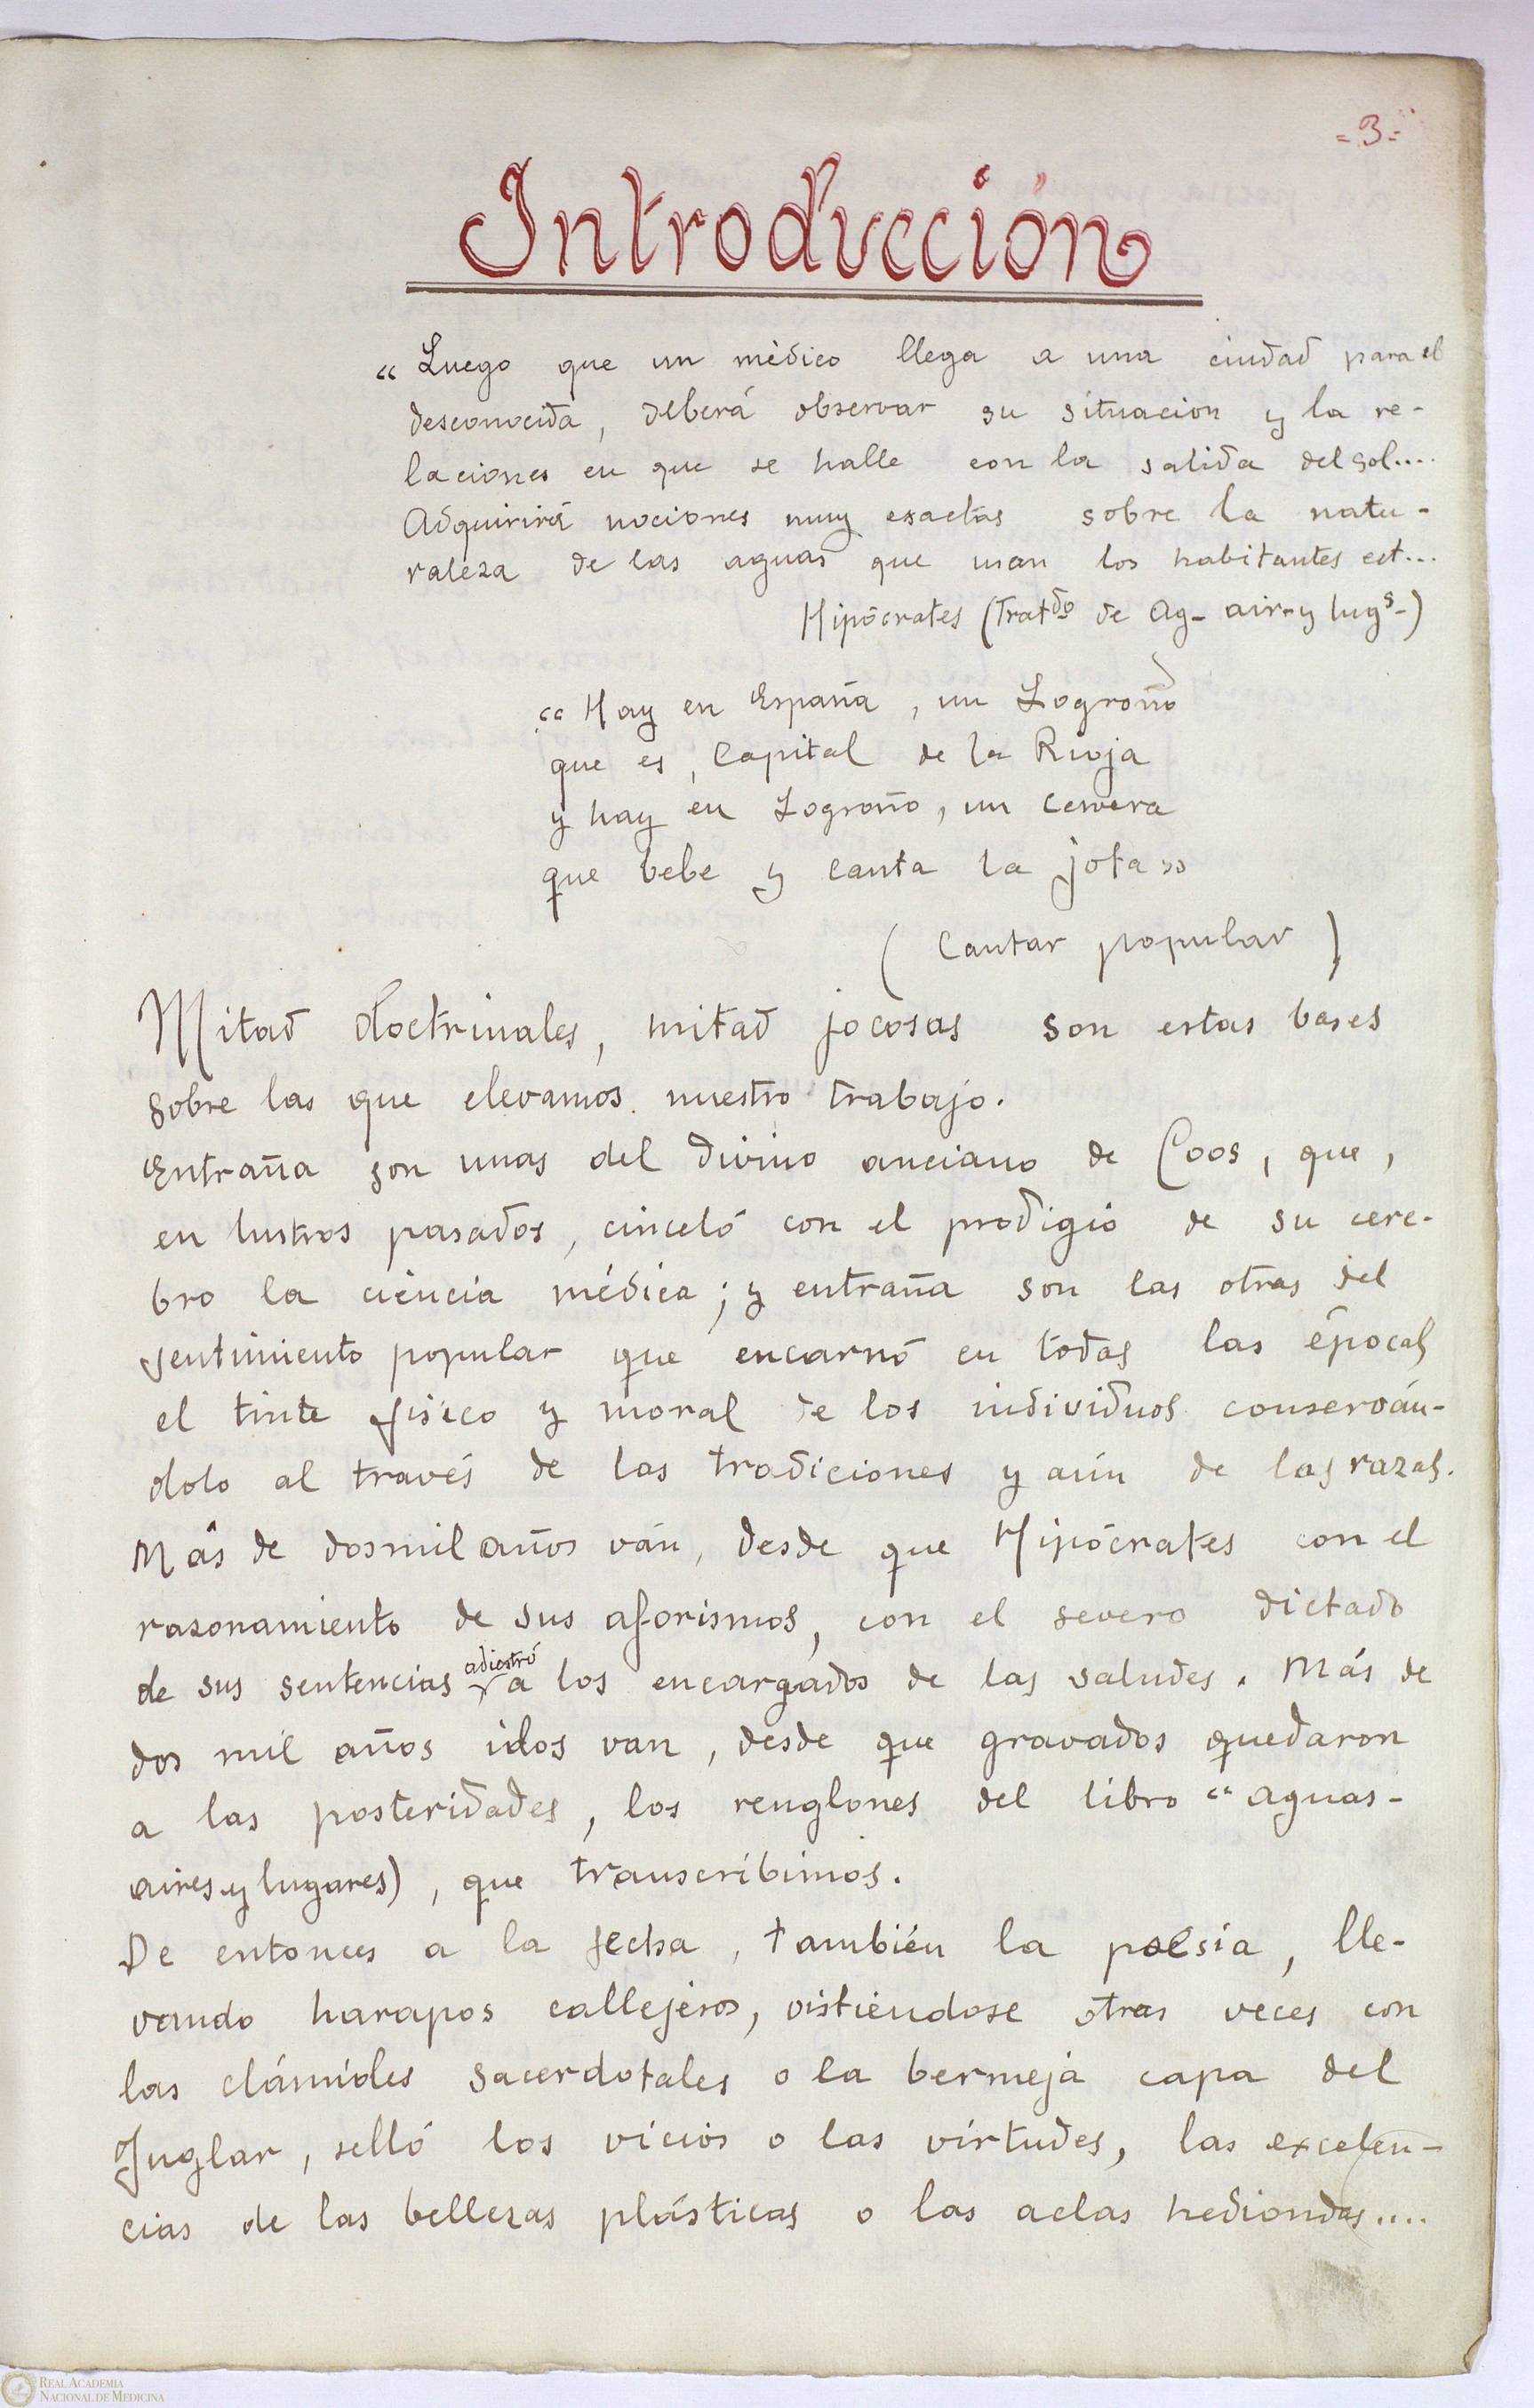 =3=
Introducción
“ Luego que un médico llega a una ciudad para el
desconocida, deberá observar su situacion y la re-
laciones en que se halle con la salida del sol....
Adquirirá nociones muy exactas sobre la natu-
raleza de las aguas que usan los habitantes ect...
Hipócrates (Tratdo de Ag- air-y lugs-)
“ Hay en España, un Logroño
que es, Capital de la Rioja
y hay en Logroño, un Cervera
que bebe y canta la jota”
(Cantar popular)
Mitad doctrinales, mitad jocosas son estas bases
sobre las que elevamos nuestro trabajo.
Entraña son unas del divino anciano de Coos, que,
en lustros pasados, cinceló con el prodigio de su cere-
bro la ciencia médica; y entraña son las otras del
sentimiento popular que encarnó en todas las épocas
el tinte físico y moral de los individuos conserván-
dolo al través de las tradiciones y aún de las razas.
Más de dosmil años ván, desde que Hipócrates con el
rasonamiento de sus aforismos, con el severo dictado
de sus sentencias adiestró a los encargados de las saludes. Más de
dos mil años idos van, desde que gravados quedaron
a las posteridades, los renglones del libro “ aguas-
aires-y lugares), que transcribimos.
De entonces a la fecha, también la poesía, lle-
vando harapos callejeros, vistiéndose otras veces con
las clámides sacerdotales o la bermeja capa del
Juglar, selló los vicios o las virtudes, las excelen-
cias de las bellezas plásticas o las aelas hediondas....
REAL ACADEMIA
NACIONAL DE MEDICINA